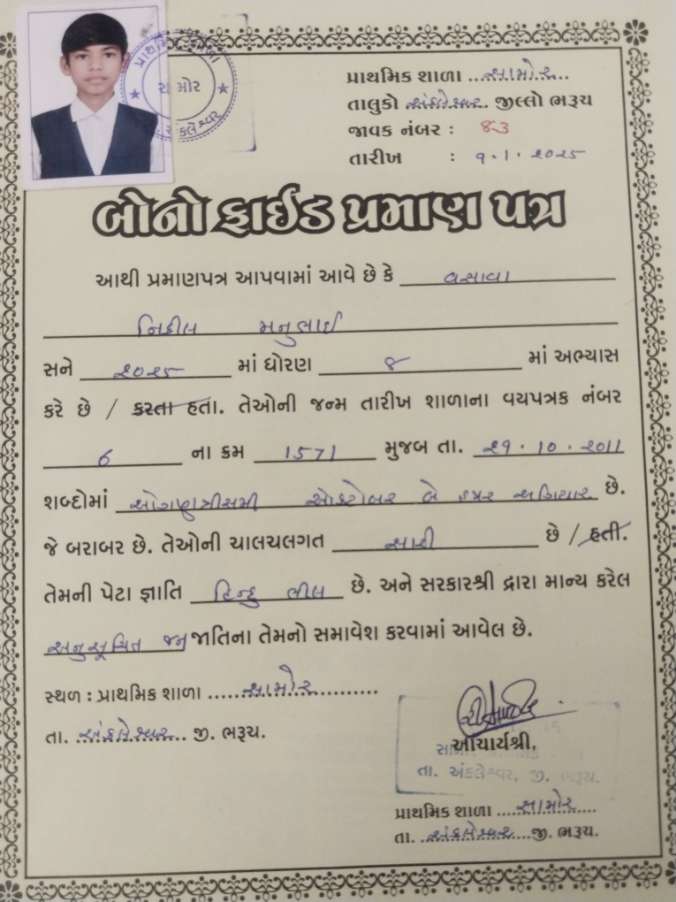 પ્રાથમિક શાળા ..સામોર..
તાલુકો અંકલેશ્વર. જીલ્લો ભરૂચ
જાવક નંબર : ૪૩
તારીખ : ૧.૧.૨૦૨૫
પ્રાથમિ
સામોર
અંકલેશ્વર
બોનો ફાઈડ પ્રમાણ પત્ર
આથી પ્રમાણપત્ર આપવામાં આવે છે કે વસાવા
મનુભાઈ
સને ૨૦૨૫ માં ધોરણ ૮ માં અભ્યાસ
કરે છે / કરતા હતા. તેઓની જન્મ તારીખ શાળાના વયપત્રક નંબર
6 ના ક્રમ 1571 મુજબ તા. ૨૧.10.2011
શબ્દોમાં ઓગણત્રીસમી ઓક્ટોબર બે હજાર અગિયાર છે.
જે બરાબર છે. તેઓની ચાલચલગત સારી છે / હતી.
તેમની પેટા જ્ઞાતિ હિન્દુ ભીલ છે. અને સરકારશ્રી દ્વારા માન્ય કરેલ
અનુસૂચિત જનજાતિના તેમનો સમાવેશ કરવામાં આવેલ છે.
સ્થળ : પ્રાથમિક શાળા ......સામોર..........
તા. .અંકલેશ્વર... જી. ભરૂચ.
આચાર્યશ્રી,
તા. અંકલેશ્વર, જી. ભરૂચ.
પ્રાથમિક શાળા ....સામોર....
તા. ..અંકલેશ્વર...જી. ભરૂચ.